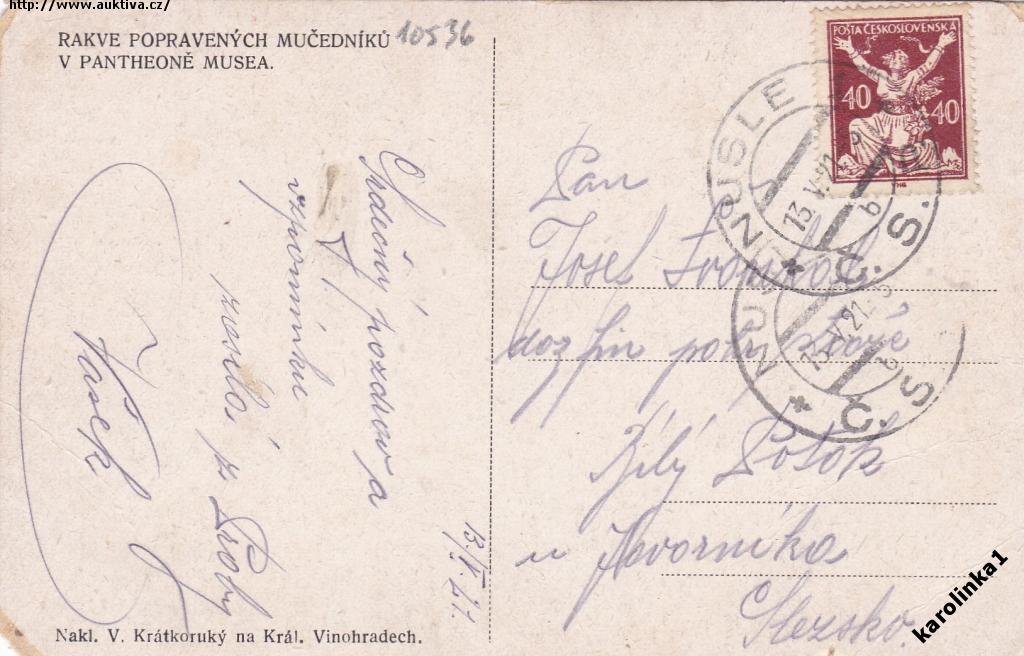 http://www.auktiva.cz/
RAKVE POPRAVENÝCH MUČEDNÍKŮ
V PANTHEONĚ MUSEA.
10536
POŠTA ČESKOSLOVENSKÁ
40 40
NUSLE
13.V.21
b
* Č.S.
NUSLE
13.V.21
b
* Č.S.
Srdečný pozdrav a
vzpomínku
zasílá z Prahy
Vašek
13.V.21.
Pan
Josef
fin
Bílý Potok
u Javorníka
Slezsko.
Nakl. V. Krátkoruký na Král. Vinohradech.
karolinka1